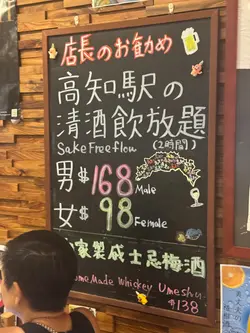 店長のお勧め
高知駅の
清酒飲放題
Sake Free flow (2時間)
男 $168 Male
女 $98 Female
家製威士忌梅酒
Made Whiskey Umeshu
$138